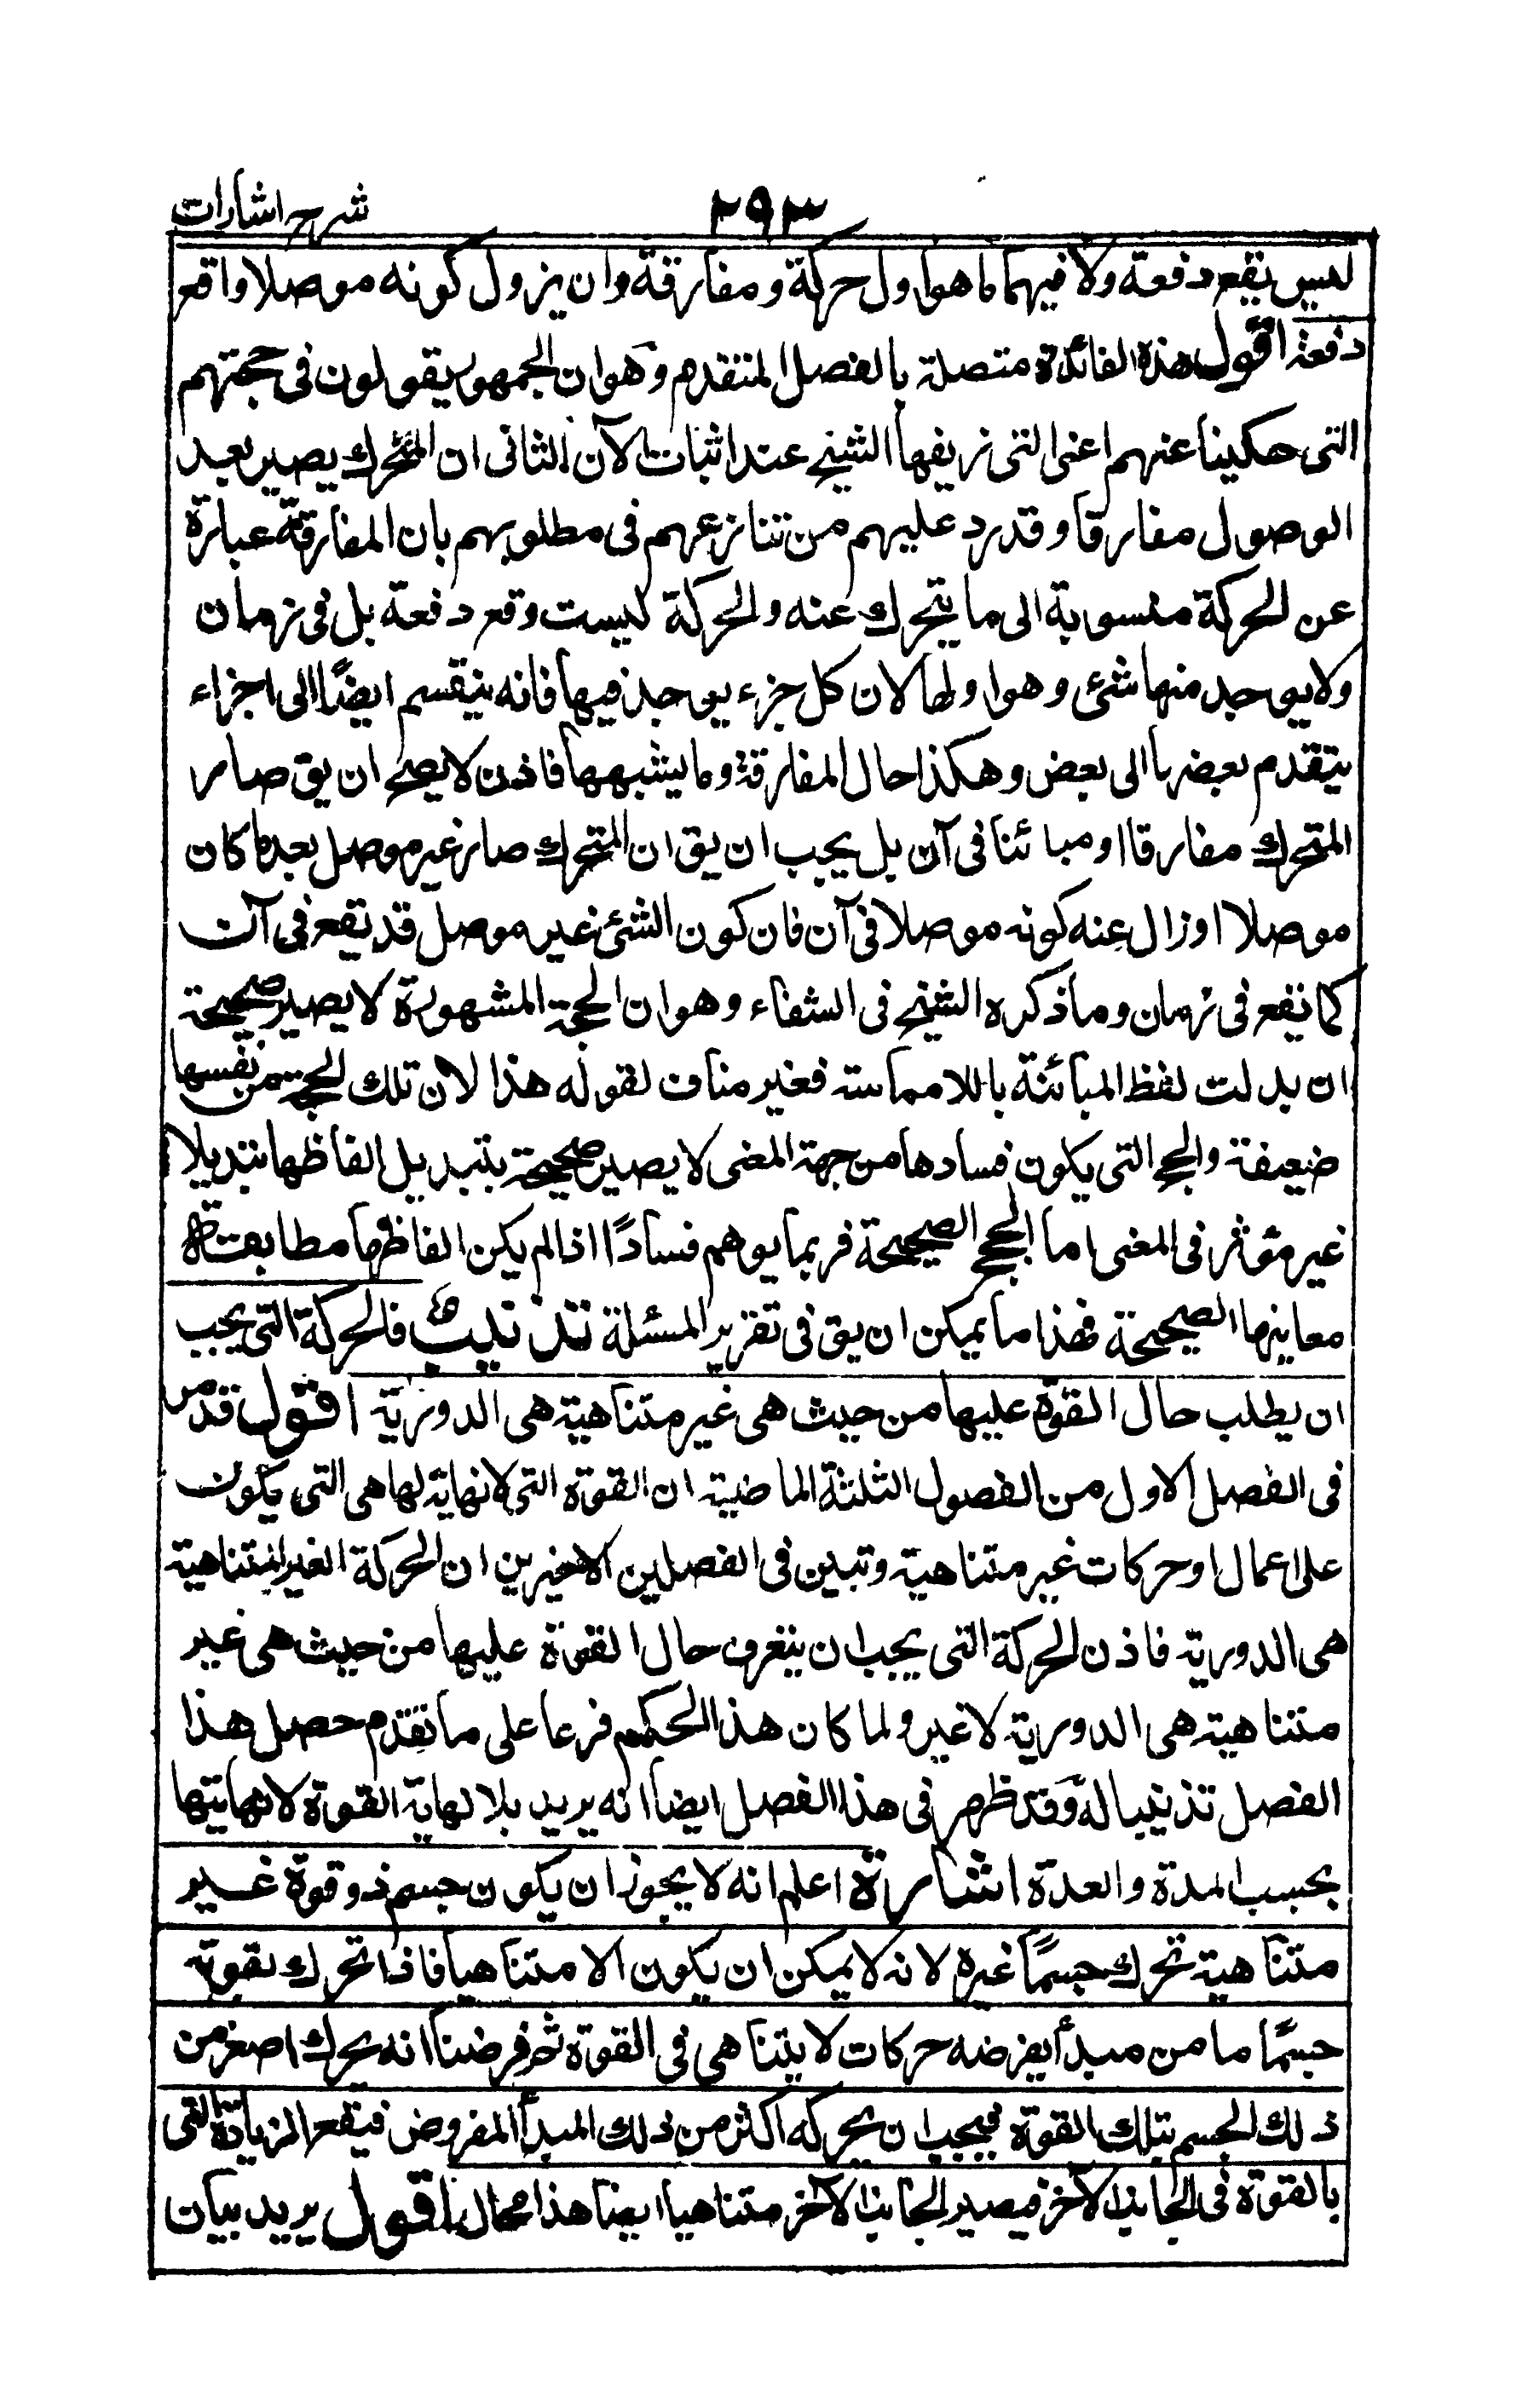 شرح اشارات
٢٩٣
ليس يقع دفعة ولا فيهما ما هو اول حركة ومفارقة وان يزول كونه موصلا واقع
دفعة اقول هذه الفائدة متصلة بالفصل المتقدم وهو ان الجمهور يقولون فى حجتهم
التى حكينا عنهم اعنى التى زيفها الشيخ عند اثبات الآن الثانى ان المتحرك يصير بعد
الوصول مفارقا وقد رد عليهم من تنازعهم فى مطلوبهم بان المفارقة عبارة
عن الحركة منسوبة الى ما يتحرك عنه والحركة ليست وقع دفعة بل فى زمان
ولا يوجد منها شئ وهو اولها لان كل جزء يوجد فيها فانه ينقسم ايضًا الى اجزاء
يتقدم بعضها الى بعض وهكذا حال المفارقة وما يشبهها فاذن لا يصح ان يق صار
المتحرك مفارقا او مبائنا فى آن بل يجب ان يق ان المتحرك صار غير موصل بعد ما كان
موصلا او زال عنه كونه موصلا فى آن فان كون الشئ غير موصل قد تقع فى آن
كما تقع فى زمان وما ذكره الشيخ فى الشفاء وهو ان الحجة المشهورة لا يصير صحيحة
ان بدلت لفظ المبائنة باللامماسة فغير مناف لقوله هذا لان تلك الحجة من نفسها
ضعيفة والحجج التى يكون فسادها من جهة المعنى لا يصير صحيحة بتبديل الفاظها تبديلا
غير مؤثر فى المعنى اما الحجج الصحيحة فربما يوهم فسادًا اذا لم يكن الفاظها مطابقة
معاينها الصحيحة فهذا ما يمكن ان يق فى تقرير المسئلة تذنيب فالحركة التى يجب
ان يطلب حال القوة عليها من حيث هى غير متناهية هى الدورية اقول قد مر
فى الفصل الاول من الفصول الثلثة الماضية ان القوة التى لا نهاية لها هى التى يكون
على اعمال او حركات غير متناهية وتبين فى الفصلين الاخيرين ان الحركة الغير المتناهية
هى الدورية فاذن الحركة التى يجب ان يتعرف حال القوة عليها من حيث هى غير
متناهية هى الدورية لا غير ولما كان هذا الحكم فرعا على ما تقدم حصل هذا
الفصل تذنيبا له وقد ظهر فى هذا الفصل ايضا انه يريد بلا نهاية القوة لا نهايتها
بحسب المدة والعدة اشارة اعلم انه لا يجوز ان يكون جسم ذو قوة غير
متناهية تحرك جسمًا غيره لانه لا يمكن ان يكون الا متناهيا فاذا تحرك بقوته
جسمًا ما من مبدأ يفرضه حركات لا يتناهى فى القوة ثم فرضنا انه يحرك اصغر من
ذلك الجسم بتلك القوة فيجب ان يحركه اكثر من ذلك المبدأ المفروض فيقع الزيادة التى
بالقوة فى الجانب الآخر فيصير الجانب الآخر متناهيا ايضا هذا محال اقول يريد بيان